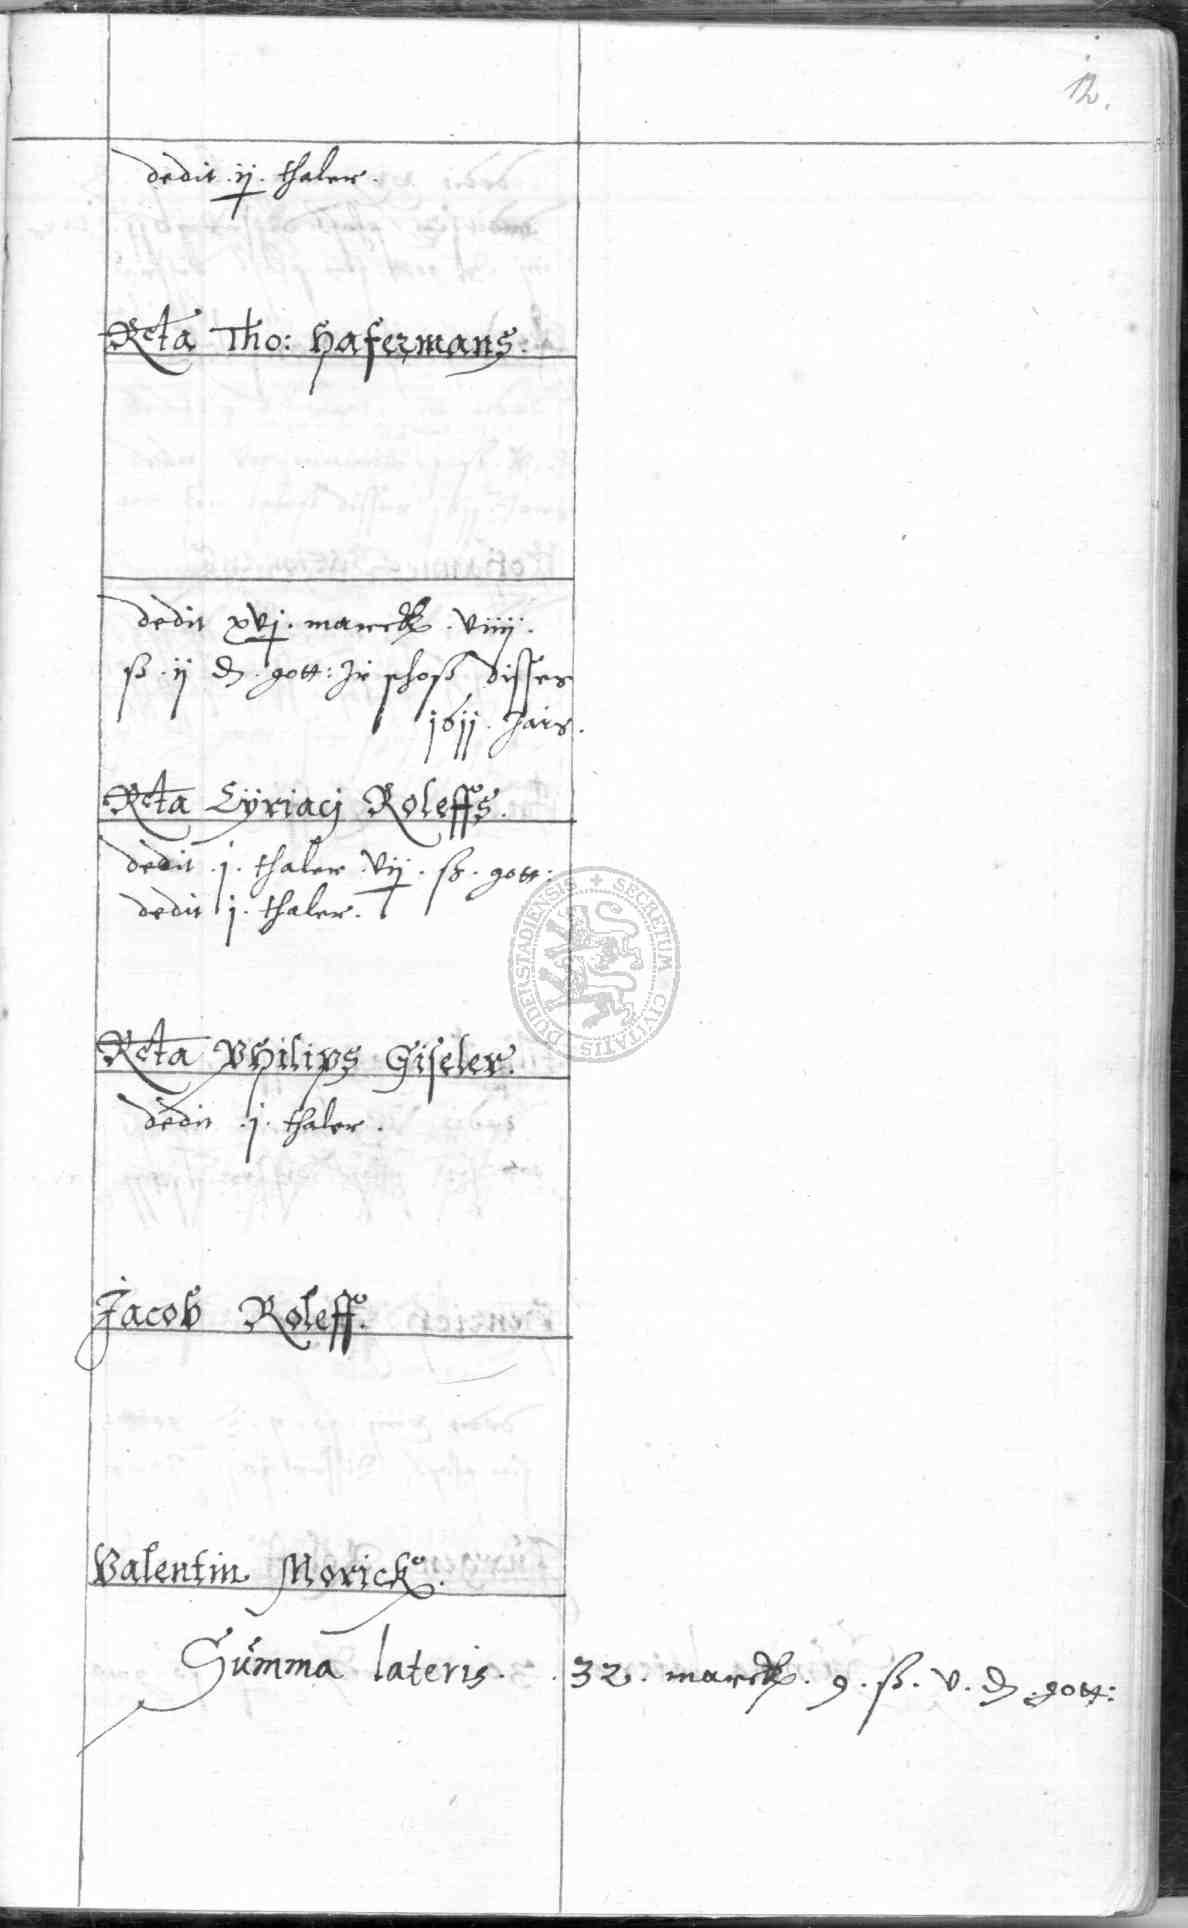 12.
dedit ij thaler.
Rcta Tho: Hafermans.
dedit xvj. marck. viiij.
ß. ij d. gott: Jr schoß disses
1611. Jars.
Rcta Cyriaci Roleffs.
dedit .j. thaler vij. ß. gott:
dedit j. thaler.
Rcta Philips Giseler.
dedit .j. thaler.
Jacob Roleff.
Valentin Morick.
Summa lateris. 32. marck. 9. ß. v. d. gott:
SECRETUM CIVITATIS DUDERSTADIENSIS